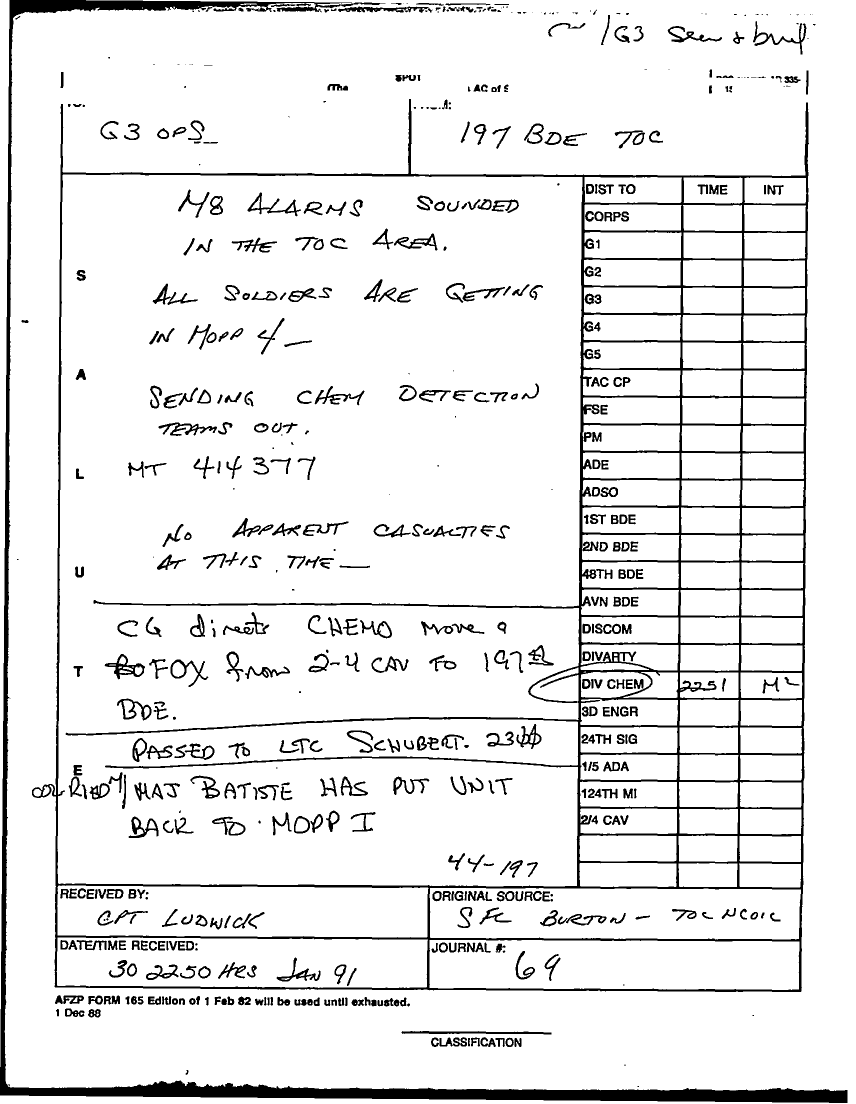 /G3 Seen & brief
SPOT
(The
AC of S
335-
G3 OPS
197 BDE TOC
M8 ALARMS SOUNDED
IN THE TOC AREA.
ALL SOLDIERS ARE GETTING
IN MOPP 4 —
SENDING CHEM DETECTION
TEAMS OUT.
MT 414377
NO APPARENT CASUALTIES
AT THIS TIME —
CG directs CHEMO move a
FOX from 2-4 CAV TO 197th
BDE.
PASSED TO LTC SCHUBERT. 2300
MAJ BATISTE HAS PUT UNIT
BACK TO MOPP I
44-197
S
A
L
U
T
E
DIST TO TIME INT
CORPS
G1
G2
G3
G4
G5
TAC CP
FSE
PM
ADE
ADSO
1ST BDE
2ND BDE
48TH BDE
AVN BDE
DISCOM
DIVARTY
DIV CHEM 2251
3D ENGR
24TH SIG
1/5 ADA
124TH MI
2/4 CAV
RECEIVED BY:
CPT LUDWICK
ORIGINAL SOURCE:
SFC BURTON - TOC NCOIC
DATE/TIME RECEIVED:
30 2250 HRS JAN 91
JOURNAL #:
69
AFZP FORM 165 Edition of 1 Feb 82 will be used until exhausted.
1 Dec 88
CLASSIFICATION